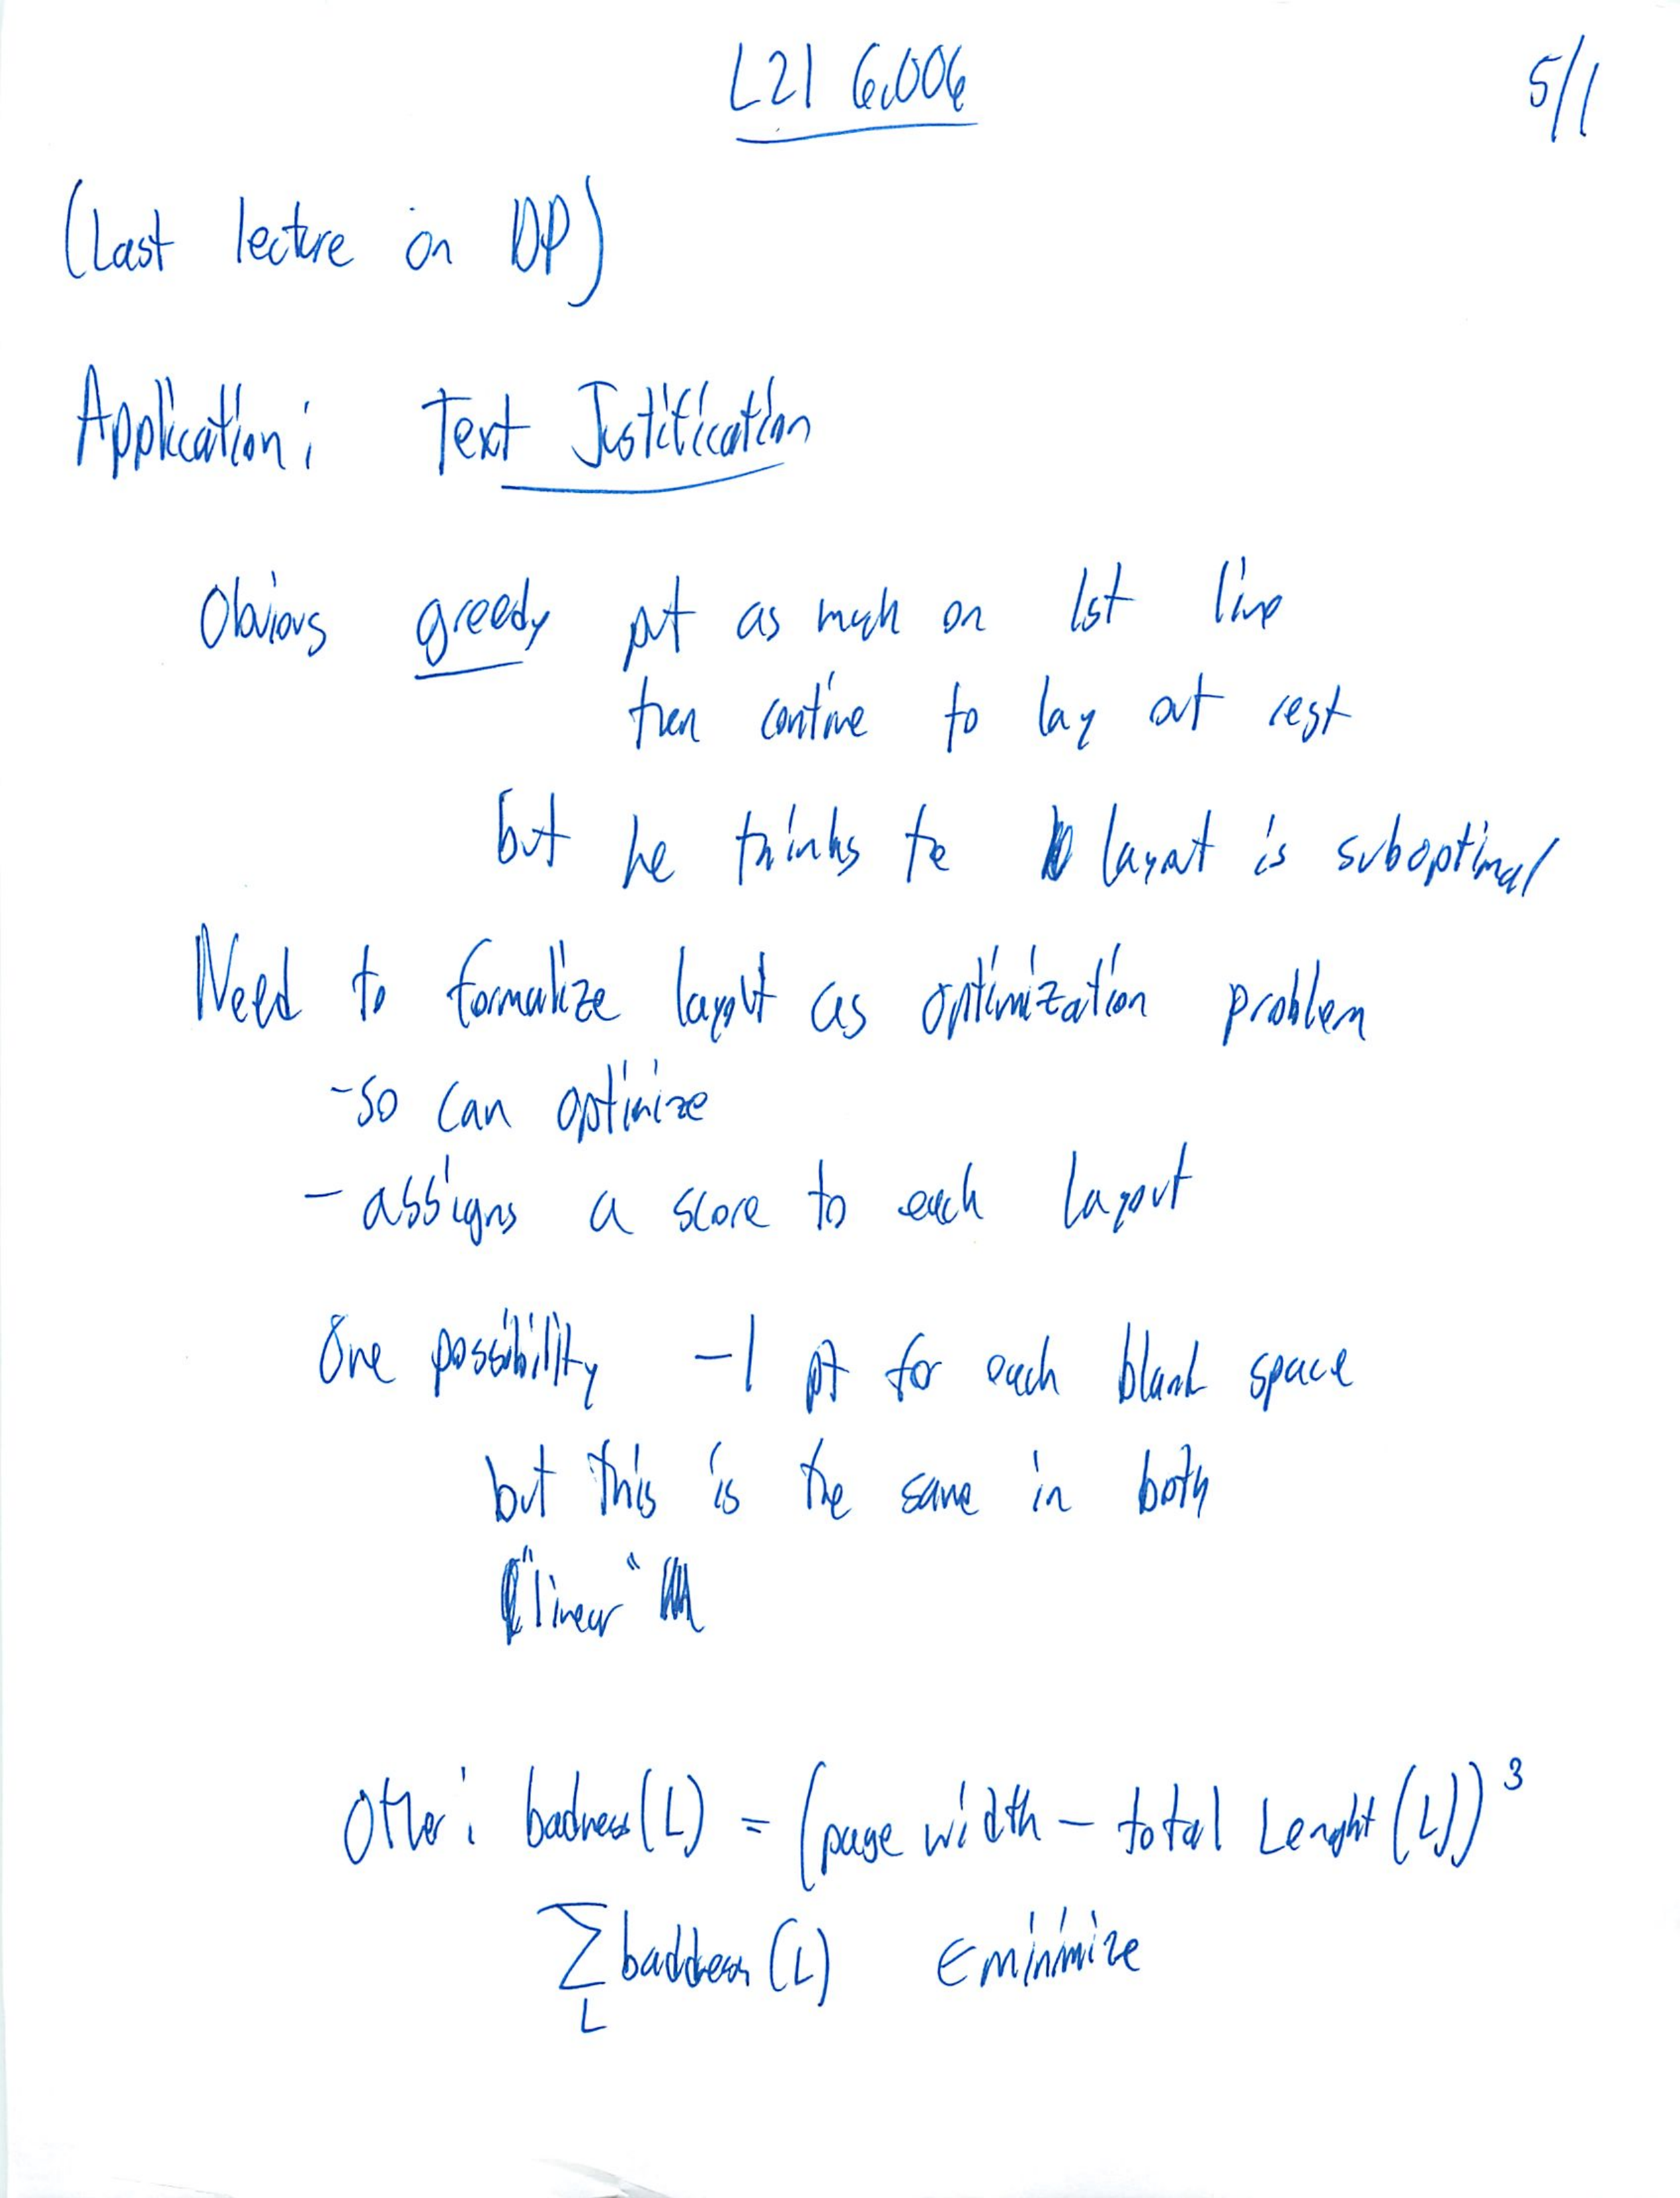 L21 6.006
5/1
(Last lecture on DP)
Application: Text Justification
Obvious greedy put as much on 1st line
then contine to lay out rest
but he thinks the layout is suboptimal
Need to formalize layout as optimization problem
-so can optimize
- assigns a score to each layout
One possibility -1 pt for each blank space
but this is the same in both
"linear"
Other: badness(L) = (page width - total Lenght(L))³
∑ badness(L) ← minimize
L